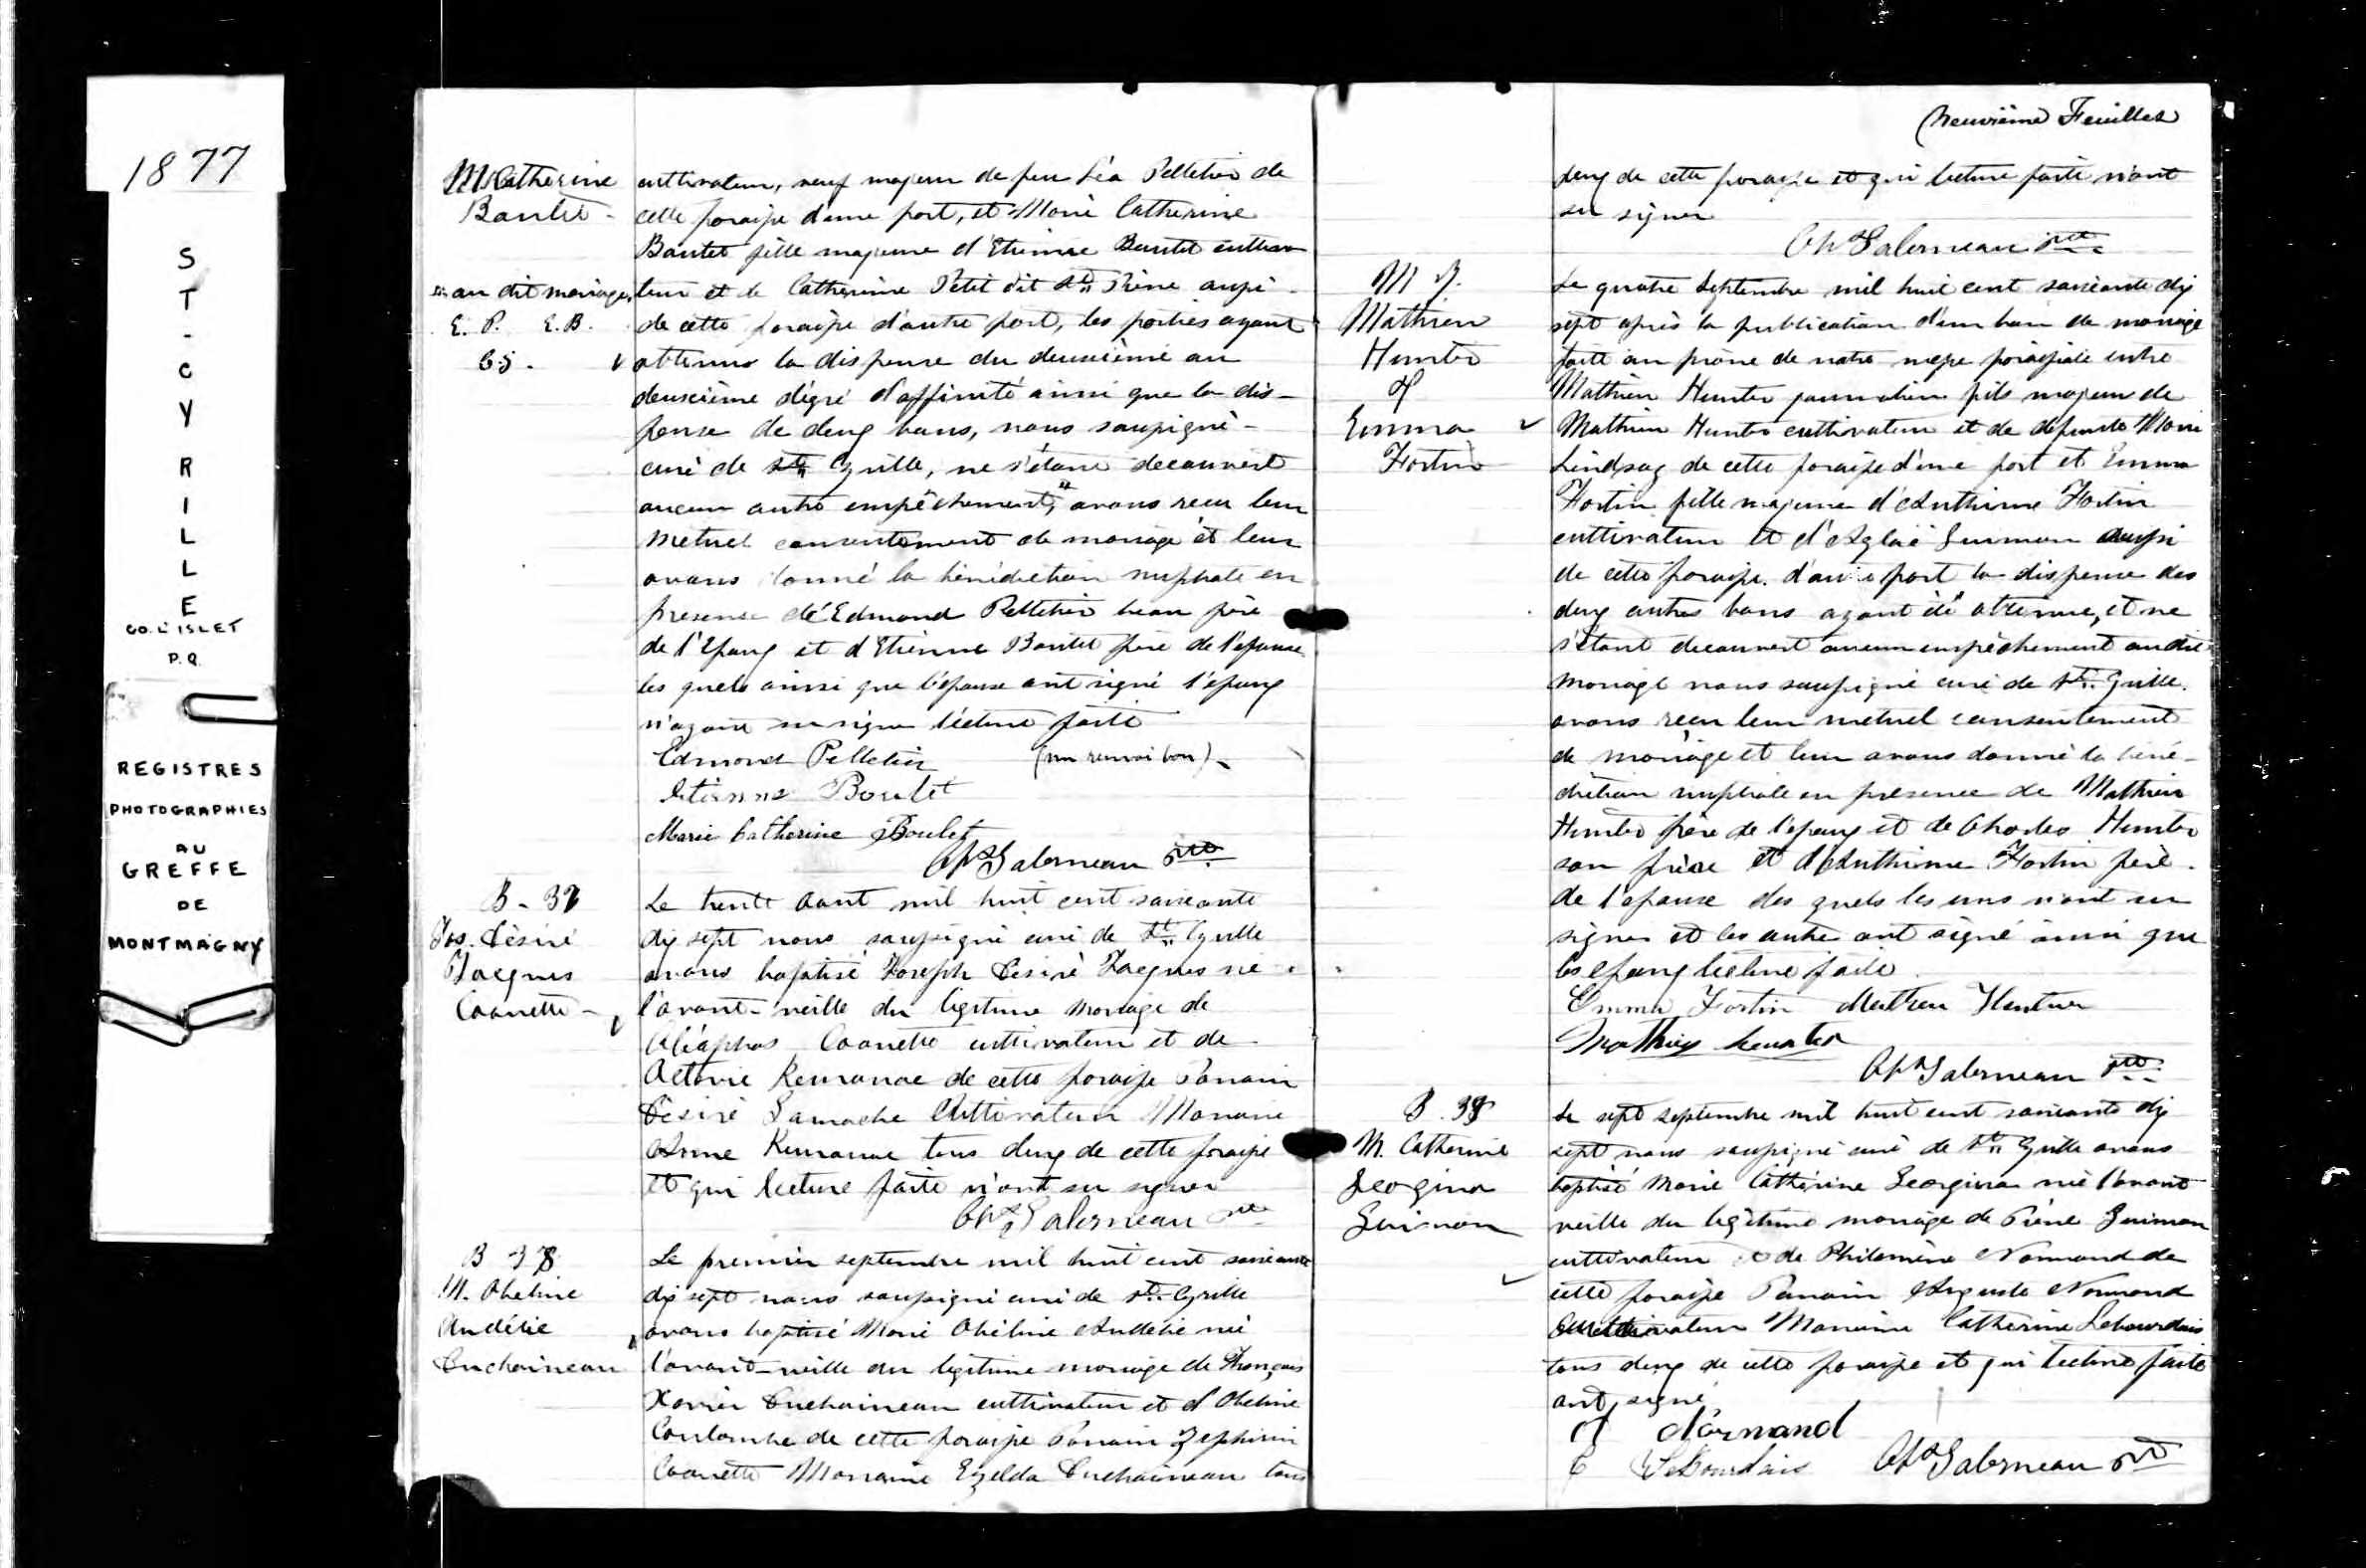 1877
S
T
-
C
Y
R
I
L
L
E
CO. L'ISLET
P.Q.
REGISTRES
PHOTOGRAPHIES
AU
GREFFE
DE
MONTMAGNY
M Catherine
Boulet -
au dit mariage,
E. P. E.B.
cultivateur, veuf majeur de feu Léa Pelletier de
cette paroisse d'une part, et Marie Catherine
Boulet fille majeure d'Etienne Boulet cultiva
teur et de Catherine Petit dit St Pierre aussi
de cette paroisse d'autre part, les parties ayant
obtenus la dispense du deuxième au
deuxième dégré d'affinité ainsi que la dis-
pense de deux bans, nous soussigné -
curé de St Cyrille, ne s'étant decouvert
aucun autre empêchement, avons recu leur
mutuel consentement de mariage et leur
avons donné la bénédiction nuptiale en
presense de Edmond Pelletier beau père
de l'Epoux et d'Etienne Boulet père de l'epouse
les quels ainsi que l'épouse ont signé l'époux
n'ayant su signer lécture faite
Edmond Pelletier (un renvoi bon)
Etienne Boulet
Marie Catherine Boulet
Chs Galerneau Ptre
B - 37
Jos. Désiré
Jacques
Caouette -
Le trente Aout mil huit cent soixante
dix sept nous soussigné curé de St Cyrille
avons baptisé Joseph Désiré Jacques né
l'avant-veille du légitime mariage de
Cléophas Caouette cultivateur et de
de cette paroisse Parrain
Désiré Gamache Cultivateur Marraine
Anne tous deux de cette paroisse
et qui lecture faite n'ont su signer
Chs Galerneau Ptre
B 38
M. Obeline
Andélie
Duchaineau
Le premier septembre mil huit cent soixante
dix sept nous soussigné curé de St Cyrille
avons baptisé Marie Obéline née
l'avant-veille du légitime mariage de François
Xavier Duchaineau cultivateur et d'Obeline
Coulombe de cette paroisse Parrain Zephirin
Caouette Marraine Ezelda Duchaineau tous
Neuvième Feuillet
deux de cette paroisse et qui lecture faite n'ont
su signer
Chs Galerneau Ptre
Mathieu
Hunter
&
Emma
Fortin
Le quatre Septembre mil huit cent soixante dix
sept après la publication d'un ban de mariage
faite au prône de notre messe paroissiale entre
Mathieu Hunter journalier fils majeur de
Mathieu Hunter cultivateur et de défunte Marie
Lindsay de cette paroisse d'une part et Emma
Fortin fille majeure d'Anthime Fortin
cultivateur et d'Aglaé Guimon aussi
de cette paroisse d'autre part la dispense des
deux autres bans ayant été obtenue, et ne
s'étant decouvert aucun empêchement au dit
mariage nous soussigné curé de St Cyrille
avons recu leur mutuel consentement
de mariage et leur avons donné la béné-
diction nuptiale en présence de Mathieu
Hunter père de l'epoux et de Charles Hunter
son frère et d'Anthime Fortin père
de l'epouse des quels les uns n'ont su
signer et les autre ont signé ainsi que
les epoux lecture faite
Emma Fortin Mathieu Hunter
Mathieu Hunter
Chs Galerneau Ptre
B. 39
M. Catherine
Georgina
Guimon
Le sept septembre mil huit cent soixante dix
sept nous soussigné curé de St Cyrille avons
baptisé Marie Cathérine Georgina née l'avant
veille du légitime mariage de Pierre Guimon
cultivateur & de Philomène Normand de
cette paroisse Parrain Auguste Normand
Cultivateur Marraine Catherine Lebourdais
tous deux de cette paroisse et qui lecture faite
ont signé
A Normand
C LeBourdais Chs Galerneau Ptre